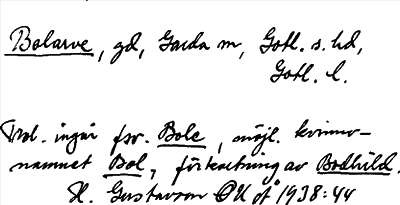 Bolarve, gd, Garda sn, Gotl. s. hd,
Gotl. l.
Trol. ingår fsv. Bole, möjl. kvinno-
namnet Bol, förkortning av Bodhild.
H. Gustavson GUÅ 1938:44